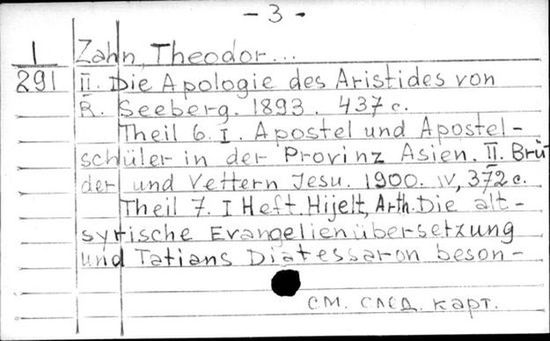 - 3 -
I Zahn, Theodor...
291 II. Die Apologie des Aristides von
R. Seeberg. 1893. 437 c.
Theil 6. I. Apostel und Apostel-
schüler in der Provinz Asien. II. Brü-
der und Vettern Jesu. 1900. IV, 372 c.
Theil 7. I Heft. Hijelt, Arth. Die alt-
syrische Evangelienübersetzung
und Tatians Diatessaron beson-
см. след. карт.